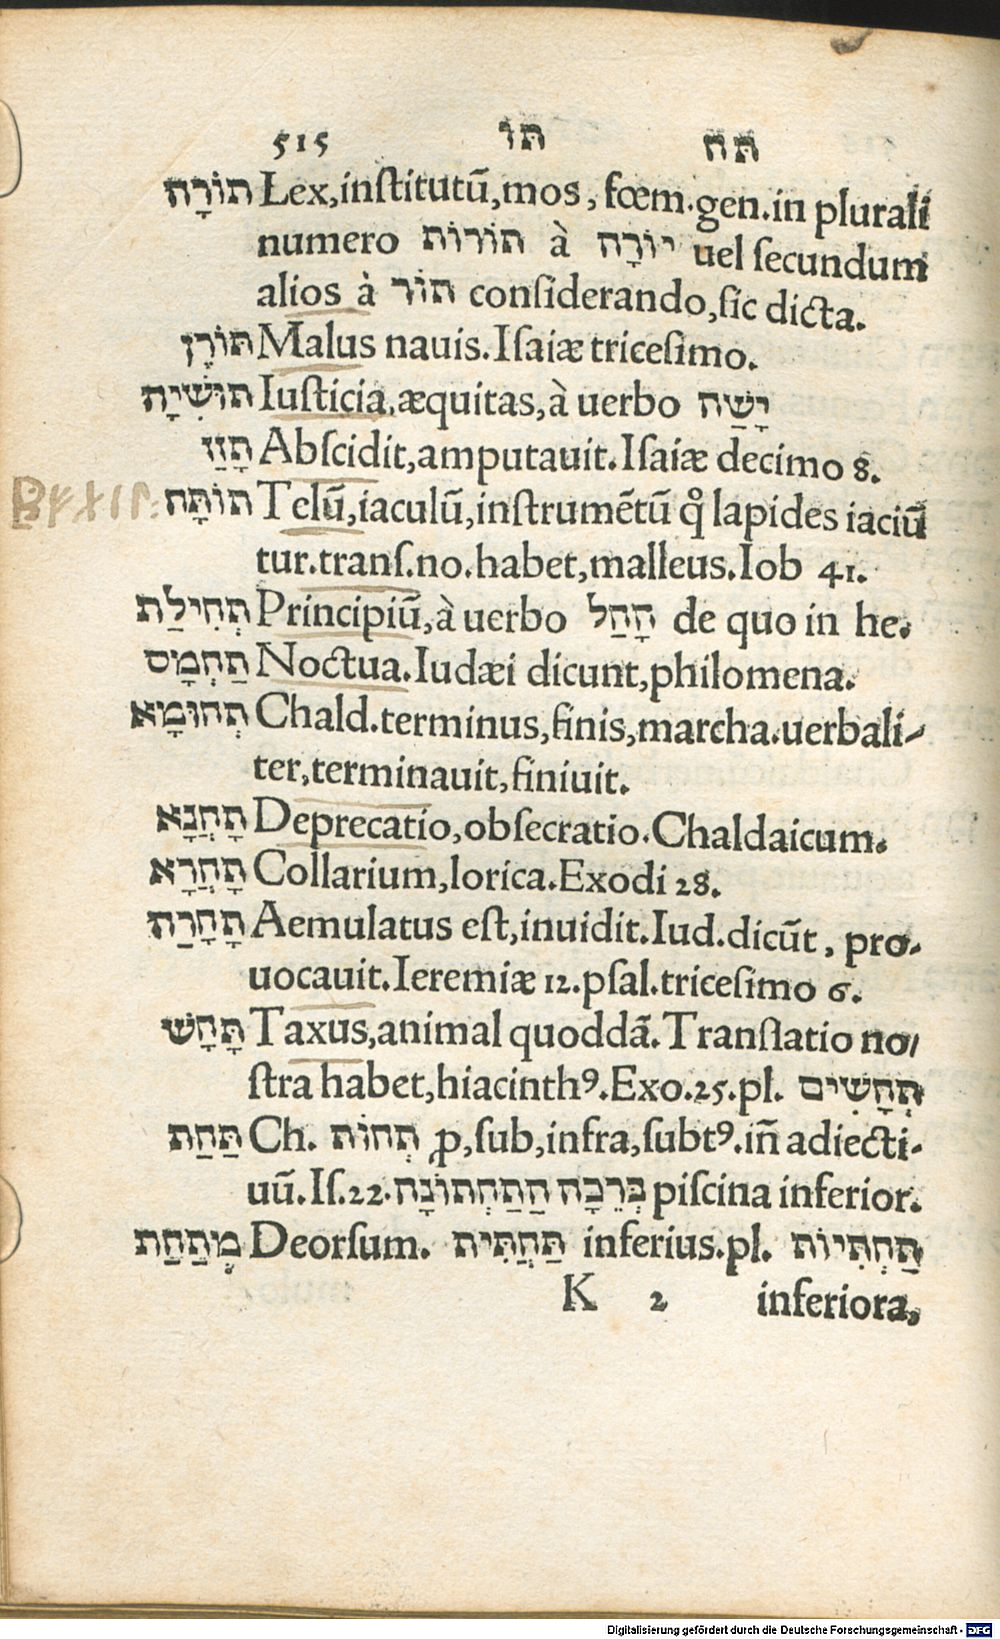 515 תו תח
תּוֹרָה Lex,inſtitutū,mos, fœm.gen.in plurali
numero תּוֹרוֹת à יוֹרָה uel ſecundum
alios à תּוֹר conſiderando,ſic dicta.
תּוֹרֶן Malus nauis.Iſaiæ triceſimo.
תּוּשִׁיָה Iuſticia,æquitas,à uerbo יָשַׁה
תָּזַז Abſcidit,amputauit.Iſaiæ decimo 8.
תּוֹתָח Telū,iaculū,inſtrumētū qͥ lapides iaciū
tur.tranſ.no.habet,malleus.Iob 41.
תְּחִילַת Principiū,à uerbo חָחַל de quo in he.
תַּחְמָס Noctua.Iudæi dicunt,philomena.
תְּחוּמָא Chald.terminus,finis,marcha.uerbali-
ter,terminauit,finiuit.
תָּחֲנָא Deprecatio,obſecratio.Chaldaicum.
תָּחֲרָא Collarium,lorica.Exodi 28.
תָּחָרַה Aemulatus eſt,inuidit.Iud.dicūt, pro-
uocauit.Ieremiæ 12.pſal.triceſimo 6.
תָּחָשׁ Taxus,animal quoddā.Tranſlatio no/
ſtra habet,hiacinthꝰ.Exo.25.pl. תְּחָשִׁים
תַּחַת Ch. תְּחוֹת ꝓ,ſub,infra,ſubtꝰ.iñ adiecti-
uū.Iſ.22.בְּרֵכָה הַתַּחְתּוֹנָה piſcina inferior.
מְתַּחַת Deorſum. תַּחֲתִּית inferius.pl. תַּחְתִּיוֹת
K 2 inferiora,
Digitalisierung gefördert durch die Deutsche Forschungsgemeinschaft - DFG